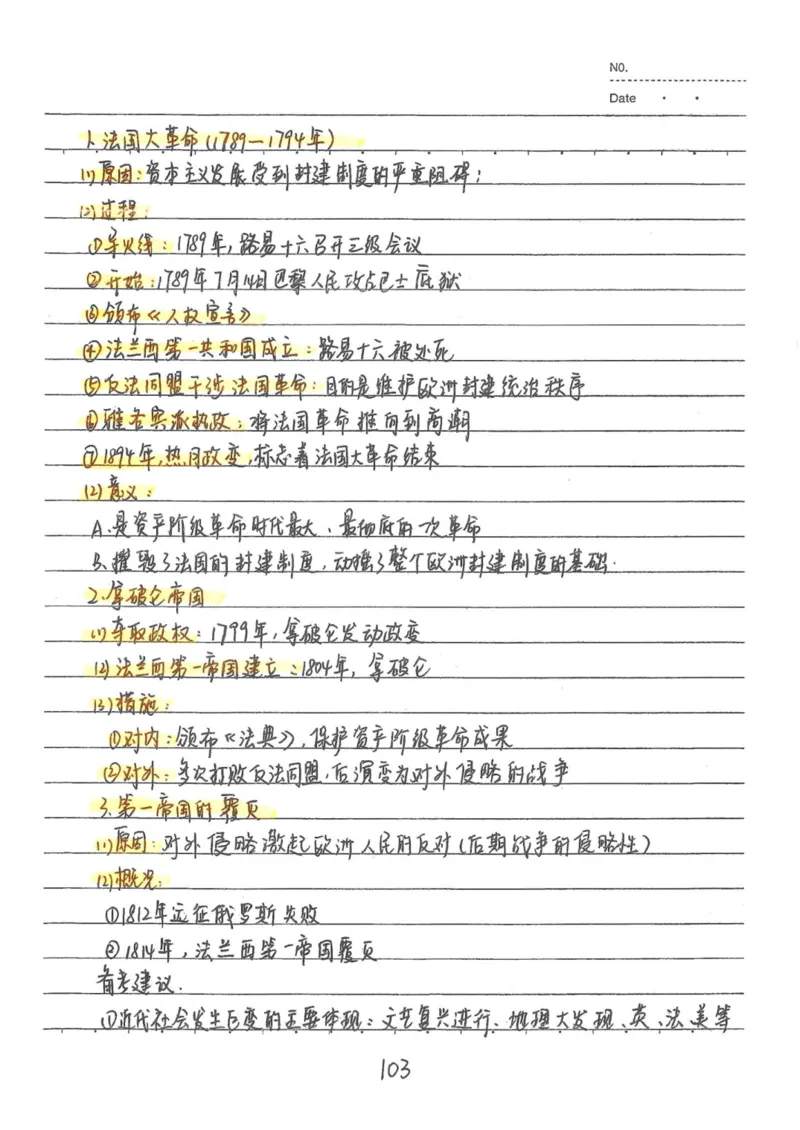 NO.
Date
1.法国大革命(1789—1794年)
(1)原因:资本主义发展受到封建制度的严重阻碍;
(2)过程:
①导火线:1789年,路易十六召开三级会议
②开始:1789年7月14日巴黎人民攻占巴士底狱
③颁布《人权宣言》
④法兰西第一共和国成立:路易十六被处死
⑤反法同盟干涉法国革命:目的是维护欧洲封建统治秩序
⑥雅各宾派执政:将法国革命推向到高潮
⑦1894年,热月政变,标志着法国大革命结束
(2)意义:
A.是资产阶级革命时代最大、最彻底的一次革命
B.摧毁了法国的封建制度,动摇了整个欧洲封建制度的基础.
2.拿破仑帝国
(1)夺取政权:1799年,拿破仑发动政变
(2)法兰西第一帝国建立:1804年,拿破仑
(3)措施:
①对内:颁布《法典》,保护资产阶级革命成果
②对外:多次打败反法同盟,后演变为对外侵略的战争
3.第一帝国的覆灭
(1)原因:对外侵略激起欧洲人民的反对(后期战争的侵略性)
(2)概况:
①1812年远征俄罗斯失败
②1814年,法兰西第一帝国覆灭
备考建议.
①近代社会发生巨变的主要体现:文艺复兴进行、地理大发现、英、法、美等
103